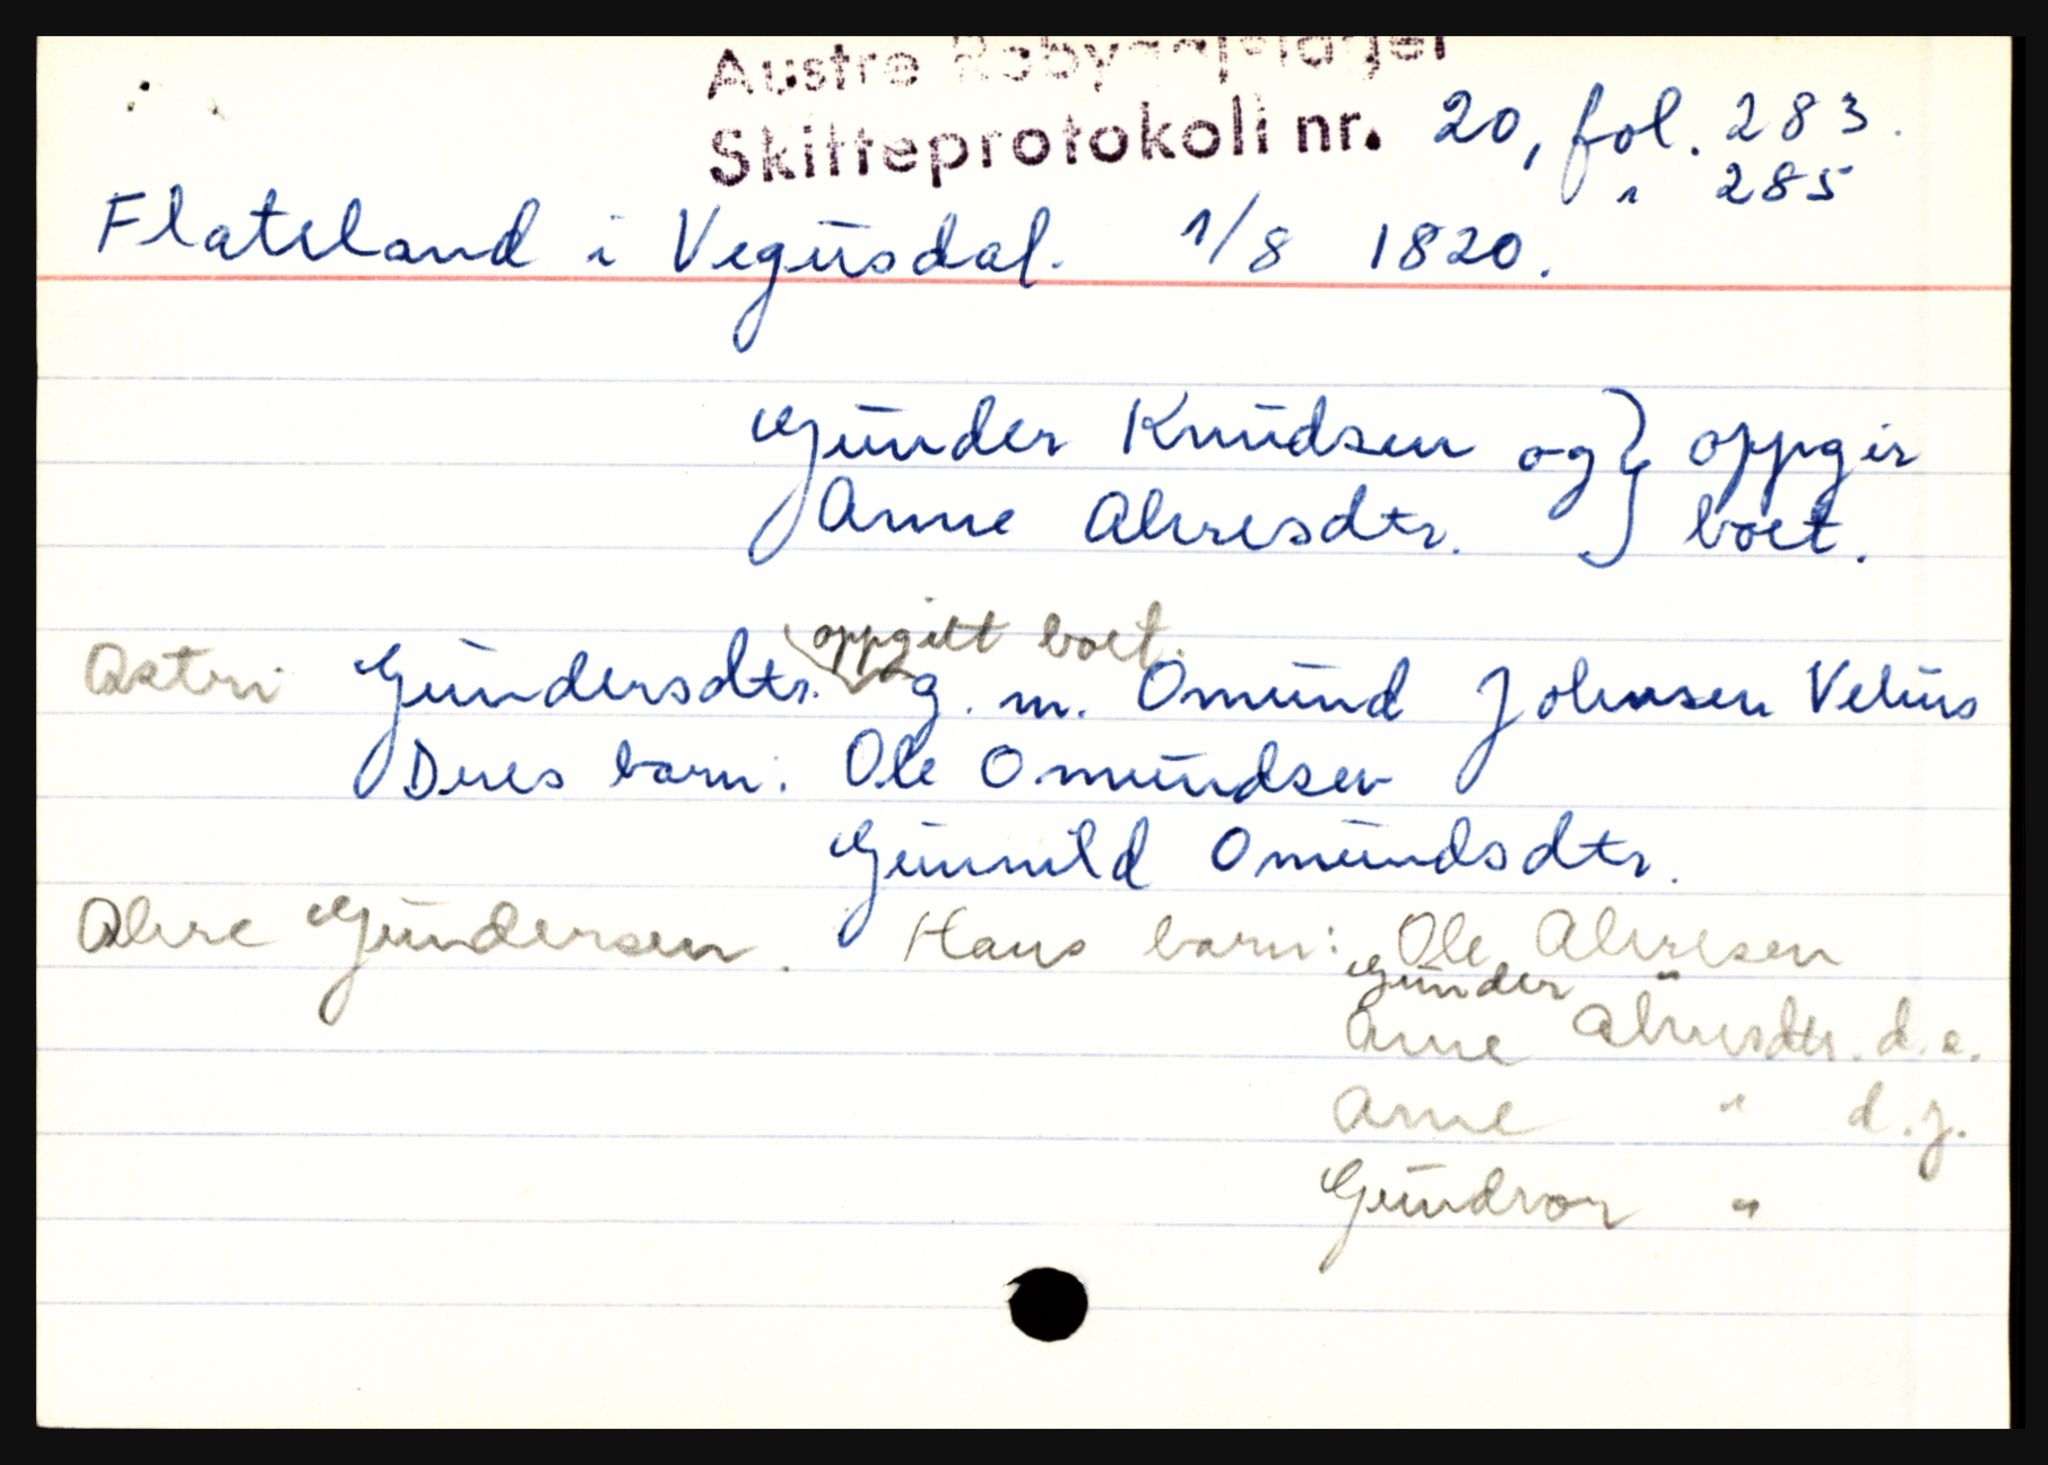 Austre Råbyggjelaget
Skifteprotokoll nr. 20, fol. 283.
" 285
Flateland i Vegusdal. 1/8 1820.
Gunder Knudsen og } oppgir
Anne Alvesdtr. } boet.
(oppgitt boet.
Astri Gundersdtr. g. m. Omund Johnsen Vehus
Deres barn: Ole Omundsen
Gunnild Omundsdtr.
Alve Gundersen. Hans barn: Ole Alvesen
Gunder "
Anne Alvesdtr. d.e.
Anne " d.y.
Gundvor "